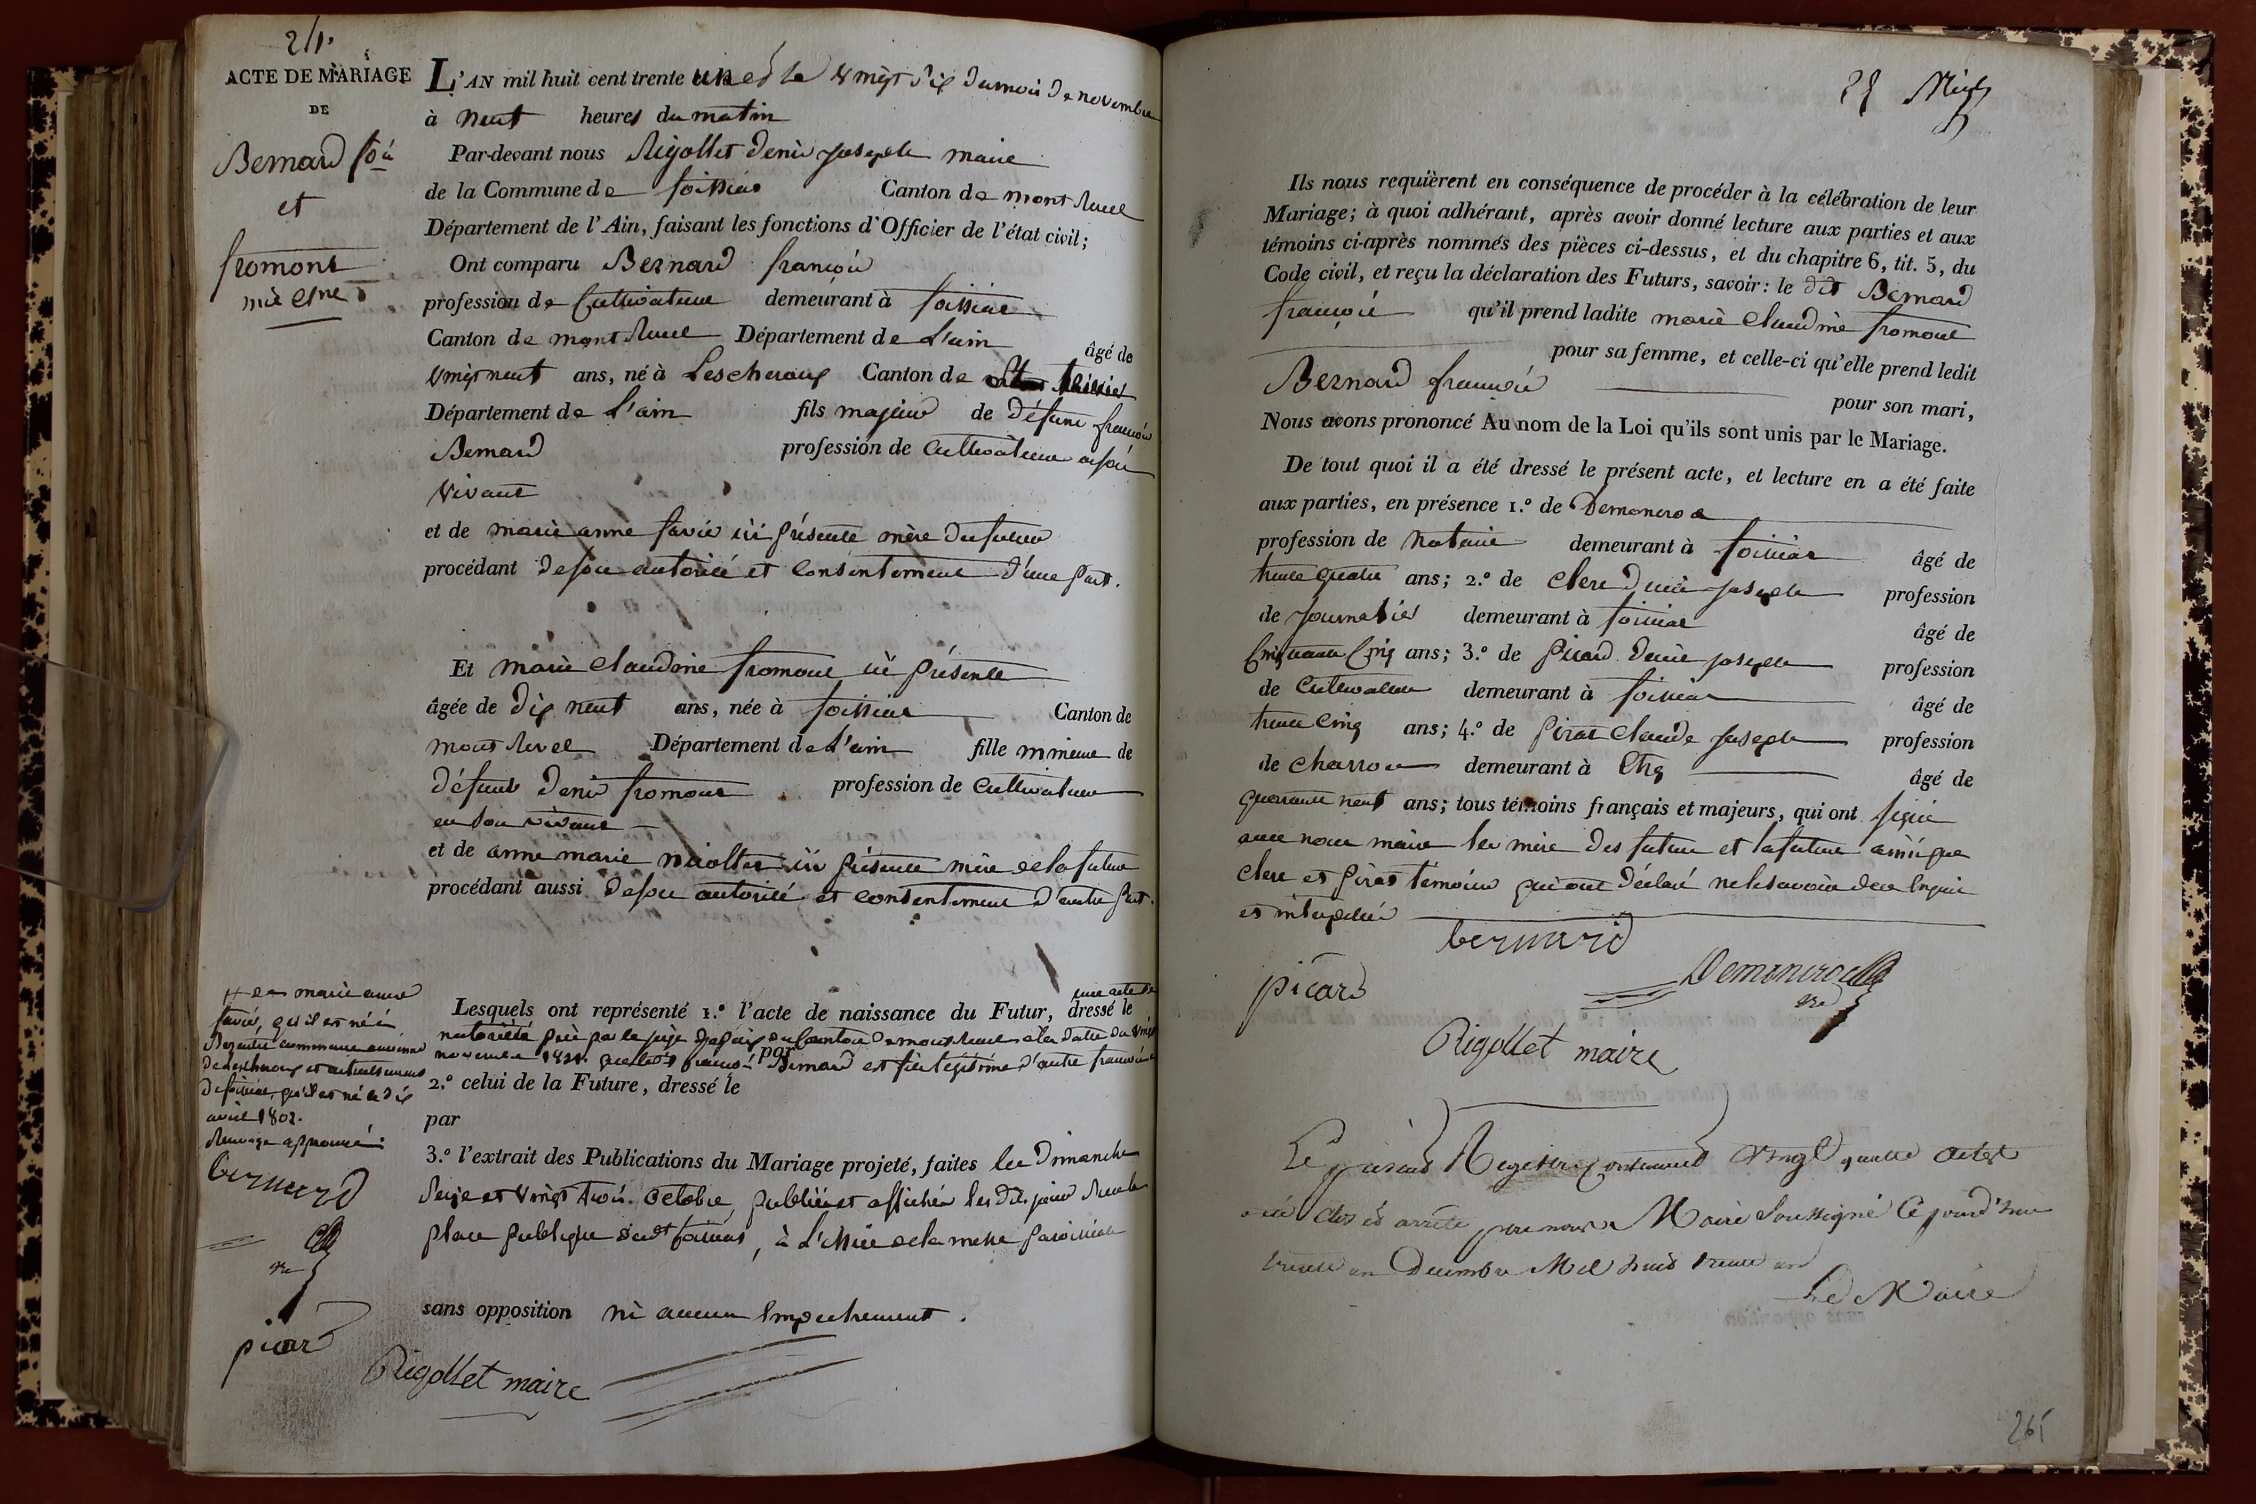 24.
ACTE DE MARIAGE
DE
Bernard fois
et
fromont
mie Clne
L'AN mil huit cent trente un et le vingt six du mois de novembre
à neuf heures du matin
Par-devant nous Rigollet denis joseph maire
de la Commune de foissiat Canton de montrevel
Département de l'Ain, faisant les fonctions d'Officier de l'état civil;
Ont comparu Bernard françois
profession de Cultivateur demeurant à foissiat
Canton de montrevel Département de L'ain âgé de
vingt neuf ans, né à Lescheroux Canton de St trivier
Département de L'ain fils majeur de défunt françois
Bernard profession de Cultivateur à son
vivant
et de marie anne favier ici présente mère du futur
procédant de son autorité et consentement d'une part.
Et marie claudine fromont ici présente
âgée de dix neuf ans, née à foissiat Canton de
montrevel Département de L'ain fille mineure de
défunt denis fromont profession de Cultivateur
en son vivant
et de anne marie ici présente mère de la future
procédant aussi de son autorité et consentement d'autre part.
Lesquels ont représenté 1.º l'acte de naissance du Futur, dressé le une acte de
notoriété par le juge de paix du Canton de montrevel à la date du vingt
novembre 1831. que ledit françois Bernard est fils légitime d'autre françois
par
2.º celui de la Future, dressé le
par
3.º l'extrait des Publications du Mariage projeté, faites les Dimanche
Seize et vingt trois octobre, publiées et affichées les dits jours sur la
place publique dudt foissiat, à L'issue de la messe paroissiale
sans opposition ni aucun Empechement.
et de marie anne
favier, qu'il est né à
commune ancienne
de Lescheroux et actuellement
de foissiat, qu'il est né le dix
avril 1802.
Renvoye approuvé:
bernard
picard
Rigollet maire
Ils nous requièrent en conséquence de procéder à la célébration de leur
Mariage; à quoi adhérant, après avoir donné lecture aux parties et aux
témoins ci-après nommés des pièces ci-dessus, et du chapitre 6, tit. 5, du
Code civil, et reçu la déclaration des Futurs, savoir: le dit Bernard
françois qu'il prend ladite marie claudine fromont
pour sa femme, et celle-ci qu'elle prend ledit
Bernard françois pour son mari,
Nous avons prononcé Au nom de la Loi qu'ils sont unis par le Mariage.
De tout quoi il a été dressé le présent acte, et lecture en a été faite
aux parties, en présence 1.º de
profession de Notaire demeurant à foissiat âgé de
trente quatre ans; 2.º de Clerc denis joseph profession
de journalier demeurant à foissiat âgé de
Cinquante Cinq ans; 3.º de Picard denis joseph profession
de Cultivateur demeurant à foissiat âgé de
trente Cinq ans; 4.º de Pirat Claude joseph profession
de charron demeurant à Etrez âgé de
quarante neuf ans; tous témoins français et majeurs, qui ont signé
avec nous maire les mère des futur et la future ainsi que
Clerc et Pirat témoins qui ont déclaré ne le savoir de ce enquis
et interpellés
bernard
picard
Rigollet maire
Le présent Registre contenant vingt quatre actes
a été clos et arrêté par nous Maire soussigné ce jourd'hui
trente un Decembre Mil huit trente un
Le Maire
265